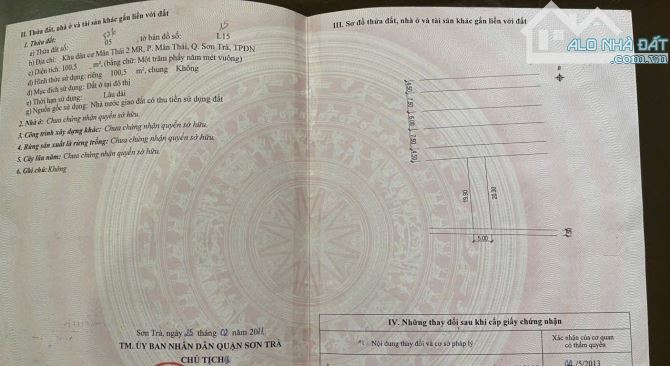 II. Thửa đất, nhà ở và tài sản khác gắn liền với đất
1. Thửa đất:
a) Thửa đất số: 05 , tờ bản đồ số: L15
b) Địa chỉ: Khu dân cư Mân Thái 2 MR, P. Mân Thái, Q. Sơn Trà, TPĐN
c) Diện tích: 100,5 m², (bằng chữ: Một trăm phẩy năm mét vuông)
d) Hình thức sử dụng: riêng 100,5 m², chung Không
đ) Mục đích sử dụng: Đất ở tại đô thị
e) Thời hạn sử dụng: Lâu dài
g) Nguồn gốc sử dụng: Nhà nước giao đất có thu tiền sử dụng đất
2. Nhà ở: Chưa chứng nhận quyền sở hữu.
3. Công trình xây dựng khác: Chưa chứng nhận quyền sở hữu.
4. Rừng sản xuất là rừng trồng: Chưa chứng nhận quyền sở hữu.
5. Cây lâu năm: Chưa chứng nhận quyền sở hữu.
6. Ghi chú: Không
Sơn Trà, ngày 25 tháng 02 năm
TM. ỦY BAN NHÂN DÂN QUẬN SƠN TRÀ
CHỦ TỊCH
III. Sơ đồ thửa đất, nhà ở và tài sản khác gắn liền với đất
ALO NHÀ ĐẤT
B
4.50
7.50
6.00
7.50
4.50
19.90
20.30
5.00
IV. Những thay đổi sau khi cấp giấy chứng nhận
Nội dung thay đổi và cơ sở pháp lý
Xác nhận của cơ quan
có thẩm quyền
/5/2013